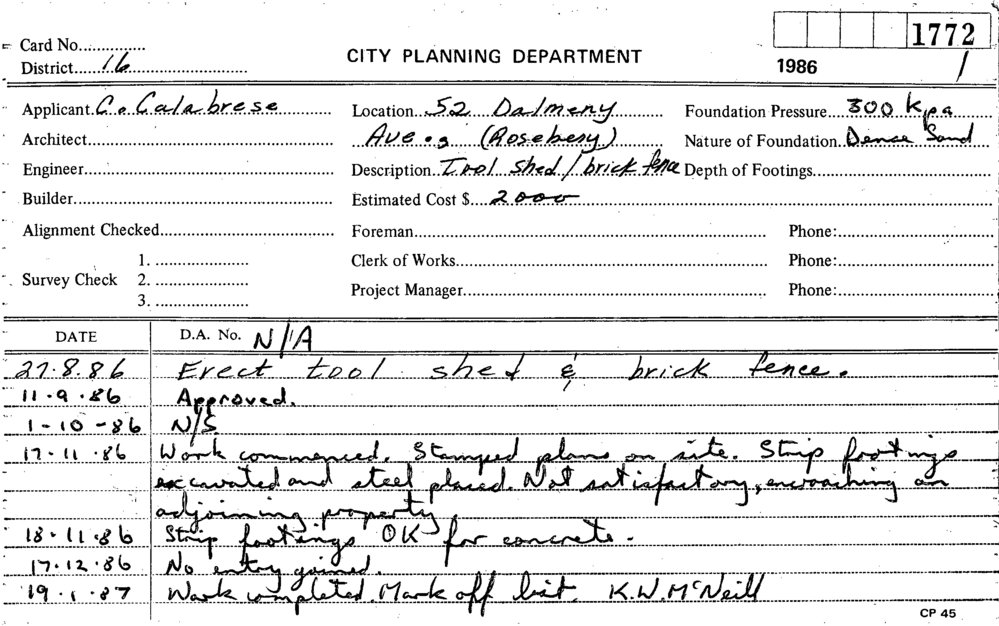 1772
Card No...............
CITY PLANNING DEPARTMENT
District......16..............................
1986
1
Applicant.C. Calabrese
Location...52 Dalmeny
Foundation Pressure...300 kpa
Architect
Ave., (Rosebery)
Nature of Foundation.Dense Sand
Engineer
Description.Tool shed / brick fence
Depth of Footings
Builder
Estimated Cost $....2000
Alignment Checked
Foreman
Phone:
Survey Check
1.
2.
3.
Clerk of Works
Phone:
Project Manager
Phone:
DATE
D.A. No. N/A
27.8.86 Erect tool shed & brick fence.
11.9.86 Approved.
1-10-86 N/S.
17.11.86 Work commenced. Stamped plans on site. Strip footings
excavated and steel placed. Not satisfactory, encroaching on
adjoining property
18.11.86 Strip footings OK for concrete.
17.12.86 No entry gained.
19.1.87 Work completed. Mark off list. K.W.McNeill
CP 45